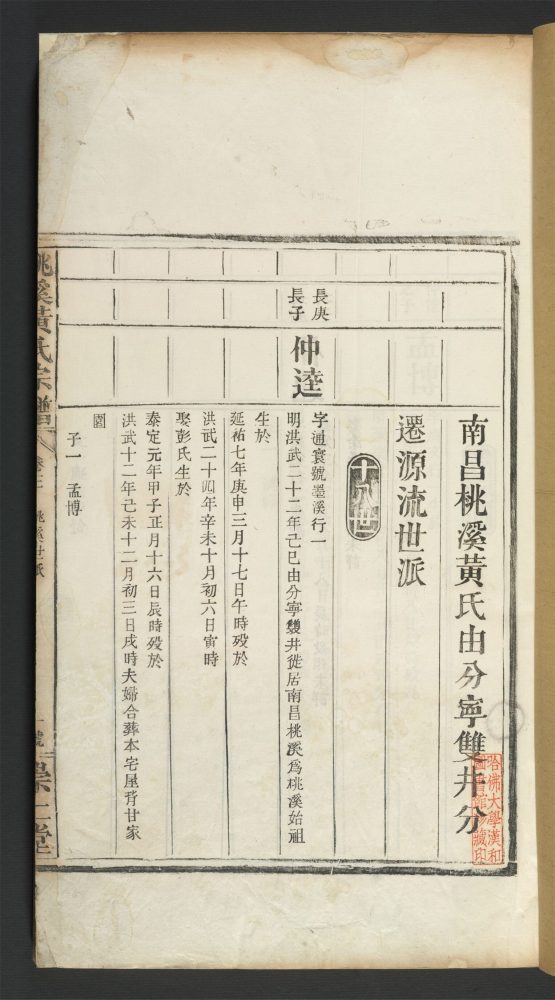 南昌桃溪黃氏由分寧雙井分
遷源流世派
十八世
長庚
長子
仲逵
字通寰號墨溪行一
明洪武二十二年己巳由分寧雙井徙居南昌桃溪爲桃溪始祖
生於
延祐七年庚申三月十七日午時歿於
洪武二十四年辛未十月初六日寅時
娶彭氏生於
泰定元年甲子正月十六日辰時歿於
洪武十二年己未十二月初三日戌時夫婦合葬本宅屋背甘家
園
子一 孟博
桃溪黃氏宗譜
桃溪世派
哈佛大學漢和
圖書館藏印